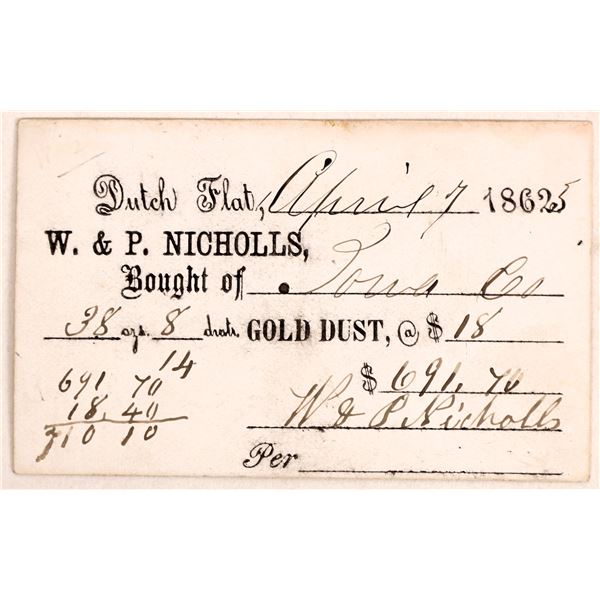 Dutch Flat, April 7 18625
W. & P. NICHOLLS,
Bought of Iowa Co
38 ozs. 8 dwts. GOLD DUST, @ $ 18
14
$ 691,70
691 70
18,40
710 10
W & P Nicholls
Per